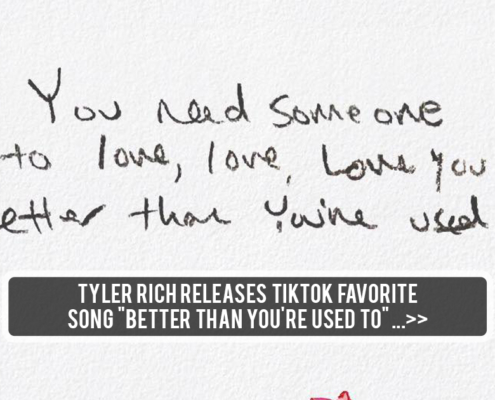 You need someone
to love, love, Love you
etter than you're used
TYLER RICH RELEASES TIKTOK FAVORITE
SONG "BETTER THAN YOU'RE USED TO"...>>